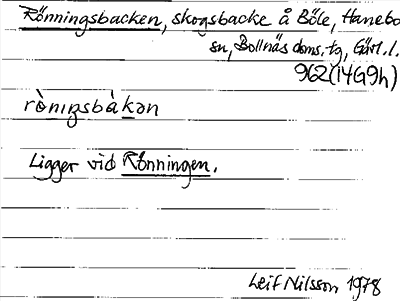 Rönningsbacken, skogsbacke å Böle, Hanebo
sn, Bollnäs doms. tg, Gävl. l.
962(14G9h)
rò̀nıŋsbàkən
Ligger vid Rönningen.
Leif Nilsson 1978